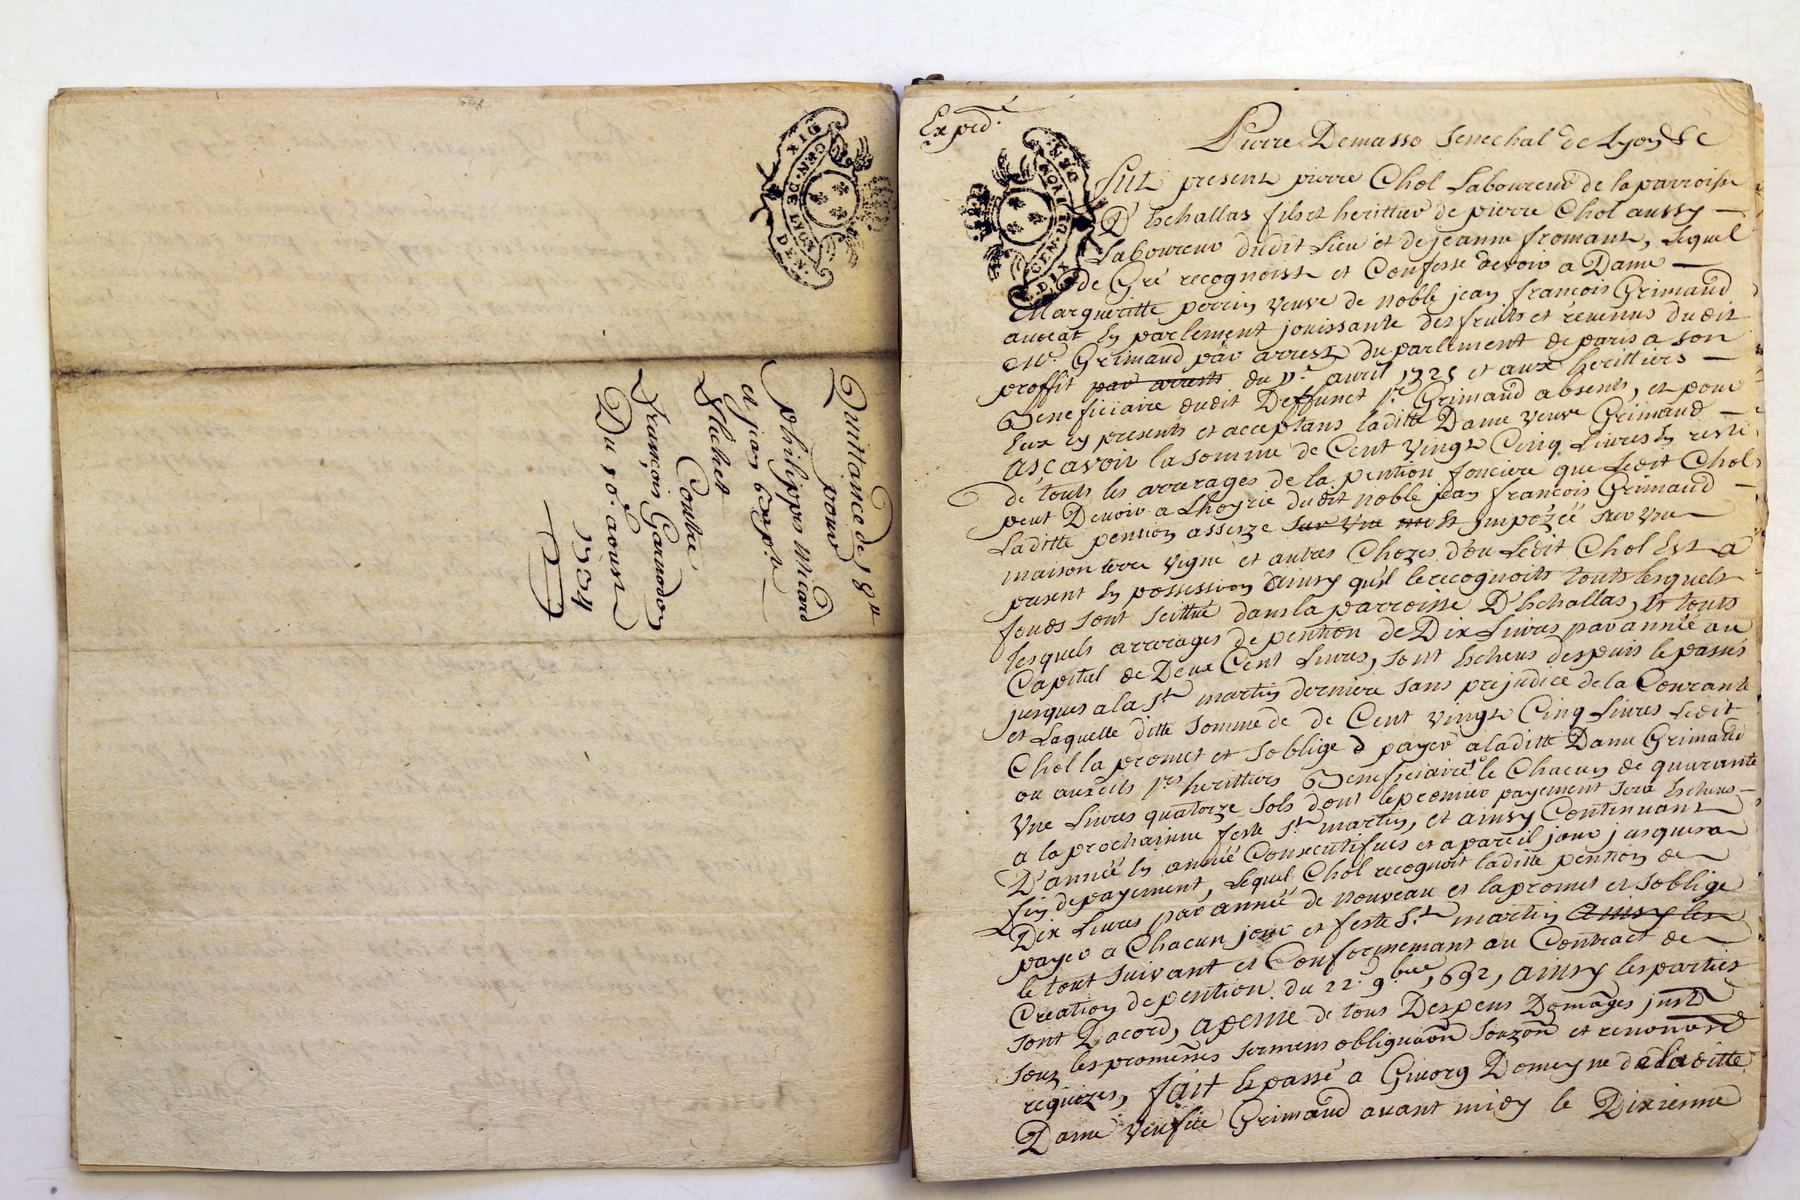 Quittance de 18 ll
pour
philippes Micard
a jean bap.te
Flichet
Contre
François Garnodon
Du 10.e aoust
1734
GEN. DE LYON
DIX DEN.
Exped.é
GEN. DE LYON
DIX DEN.
Pierre Demasso Senechal de Lyon &c
Fut present pierre Chol Laboureur de la parroisse
D'Echallas fils et herittier de pierre Chol aussy
Laboureur dudit Lieu et de jeanne fromant, Lequel
de Gré recognoist et Confesse devoir a Dame
Margueritte perrin veuve de noble jean françois Grimaud
avocat En parlement jouissante des fruits et revenus dudit
Mr. Grimaud par arrest du parlement de paris a son
proffit par arrests du avril 1725 et aux herittiers
Beneficiaire dudit Deffunct Sr. Grimaud absents, et pour
Eux Ey presents et acceptans laditte Dame veuve Grimaud
asçavoir la somme de Cent vingt Cinq Livres En reste
de touts les arrerages de la pention fonciere que Ledit Chol
peut Devoir a Lhoyrie dudit noble jean françois Grimaud
Laditte pention assize sur Une Et Impozéé sur Une
maison terre vigne et autres Chozes d'ou Ledit Chol Est a
present En possession ainsy qu'il le recognoits touts lesquels
fonds sont scittué dans la parroisse D'Echallas, Et touts
lesquels arrerages de pention de Dix Livres par annéé au
Capital de Deux Cent Livres, sont Echeus despuis le passés
jusques a la St. martin derniere sans prejudice de la Courante
et Laquelle ditte somme de de Cent vingt Cinq Livres Ledit
Chol la promet et soblige d payer a laditte Dame Grimaud
ou auxdits Srs. herittiers Beneficiaire le Chacun de quarante
Une Livres quatorze sols dont le premier payement sera Echeus
a la prochainne feste St. martin, et ainsy Continuant
D'annéé En annéé Consecutifves et a pareil jour jusques a
fin de payement, Lequel Chol recognoit laditte pention de
Dix Livres par annéé de nouveau et la promet et soblige
payer a Chacun jour et feste St. martin ainsy les
le tout suivant et Conformement au Contract de
Creation de pention du 22.e 9.bre 1692, ainsy les parties
sont Dacord, a peine de tous Despens Domages
souz les promesses sermens obligaōn souzon et renonōn
requizes, fait et passé a Givors Domeyne de laditte
Dame veufve Grimaud avant midy le Dixieme